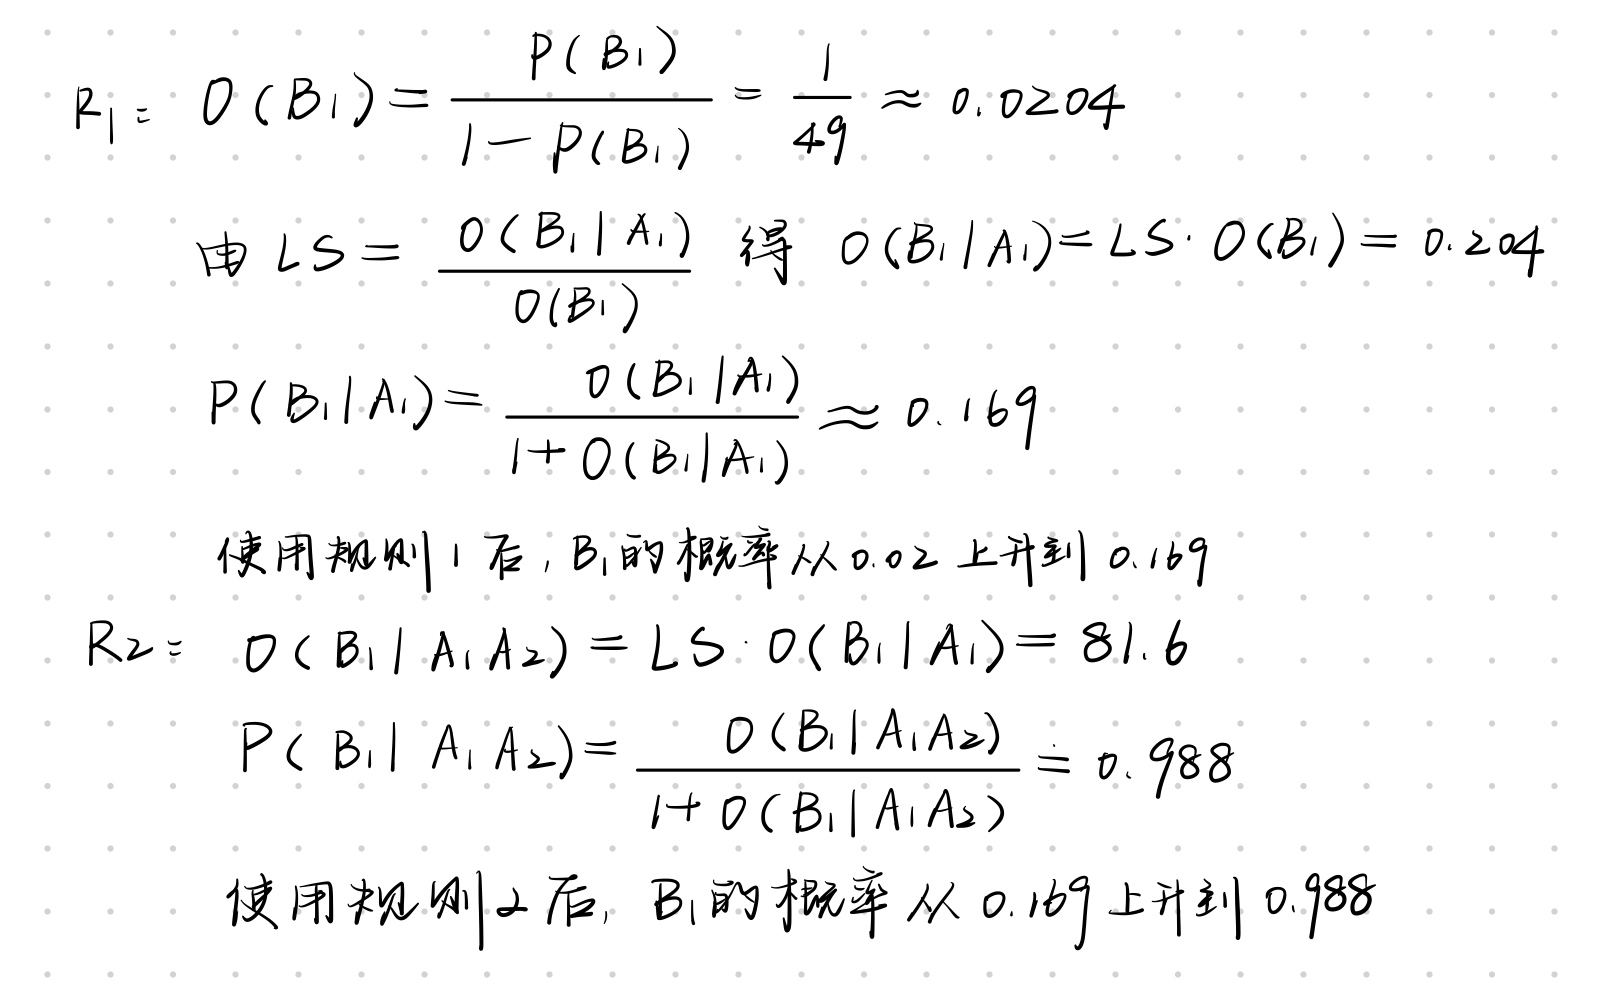 R₁: O(B₁) = P(B₁) / (1 - P(B₁)) = 1/49 ≈ 0.0204
由 LS = O(B₁|A₁) / O(B₁) 得 O(B₁|A₁) = LS · O(B₁) = 0.204
P(B₁|A₁) = O(B₁|A₁) / (1 + O(B₁|A₁)) ≈ 0.169
使用规则1后, B₁的概率从0.02上升到0.169
R₂: O(B₁|A₁A₂) = LS · O(B₁|A₁) = 81.6
P(B₁|A₁A₂) = O(B₁|A₁A₂) / (1 + O(B₁|A₁A₂)) = 0.988
使用规则2后, B₁的概率从0.169上升到0.988